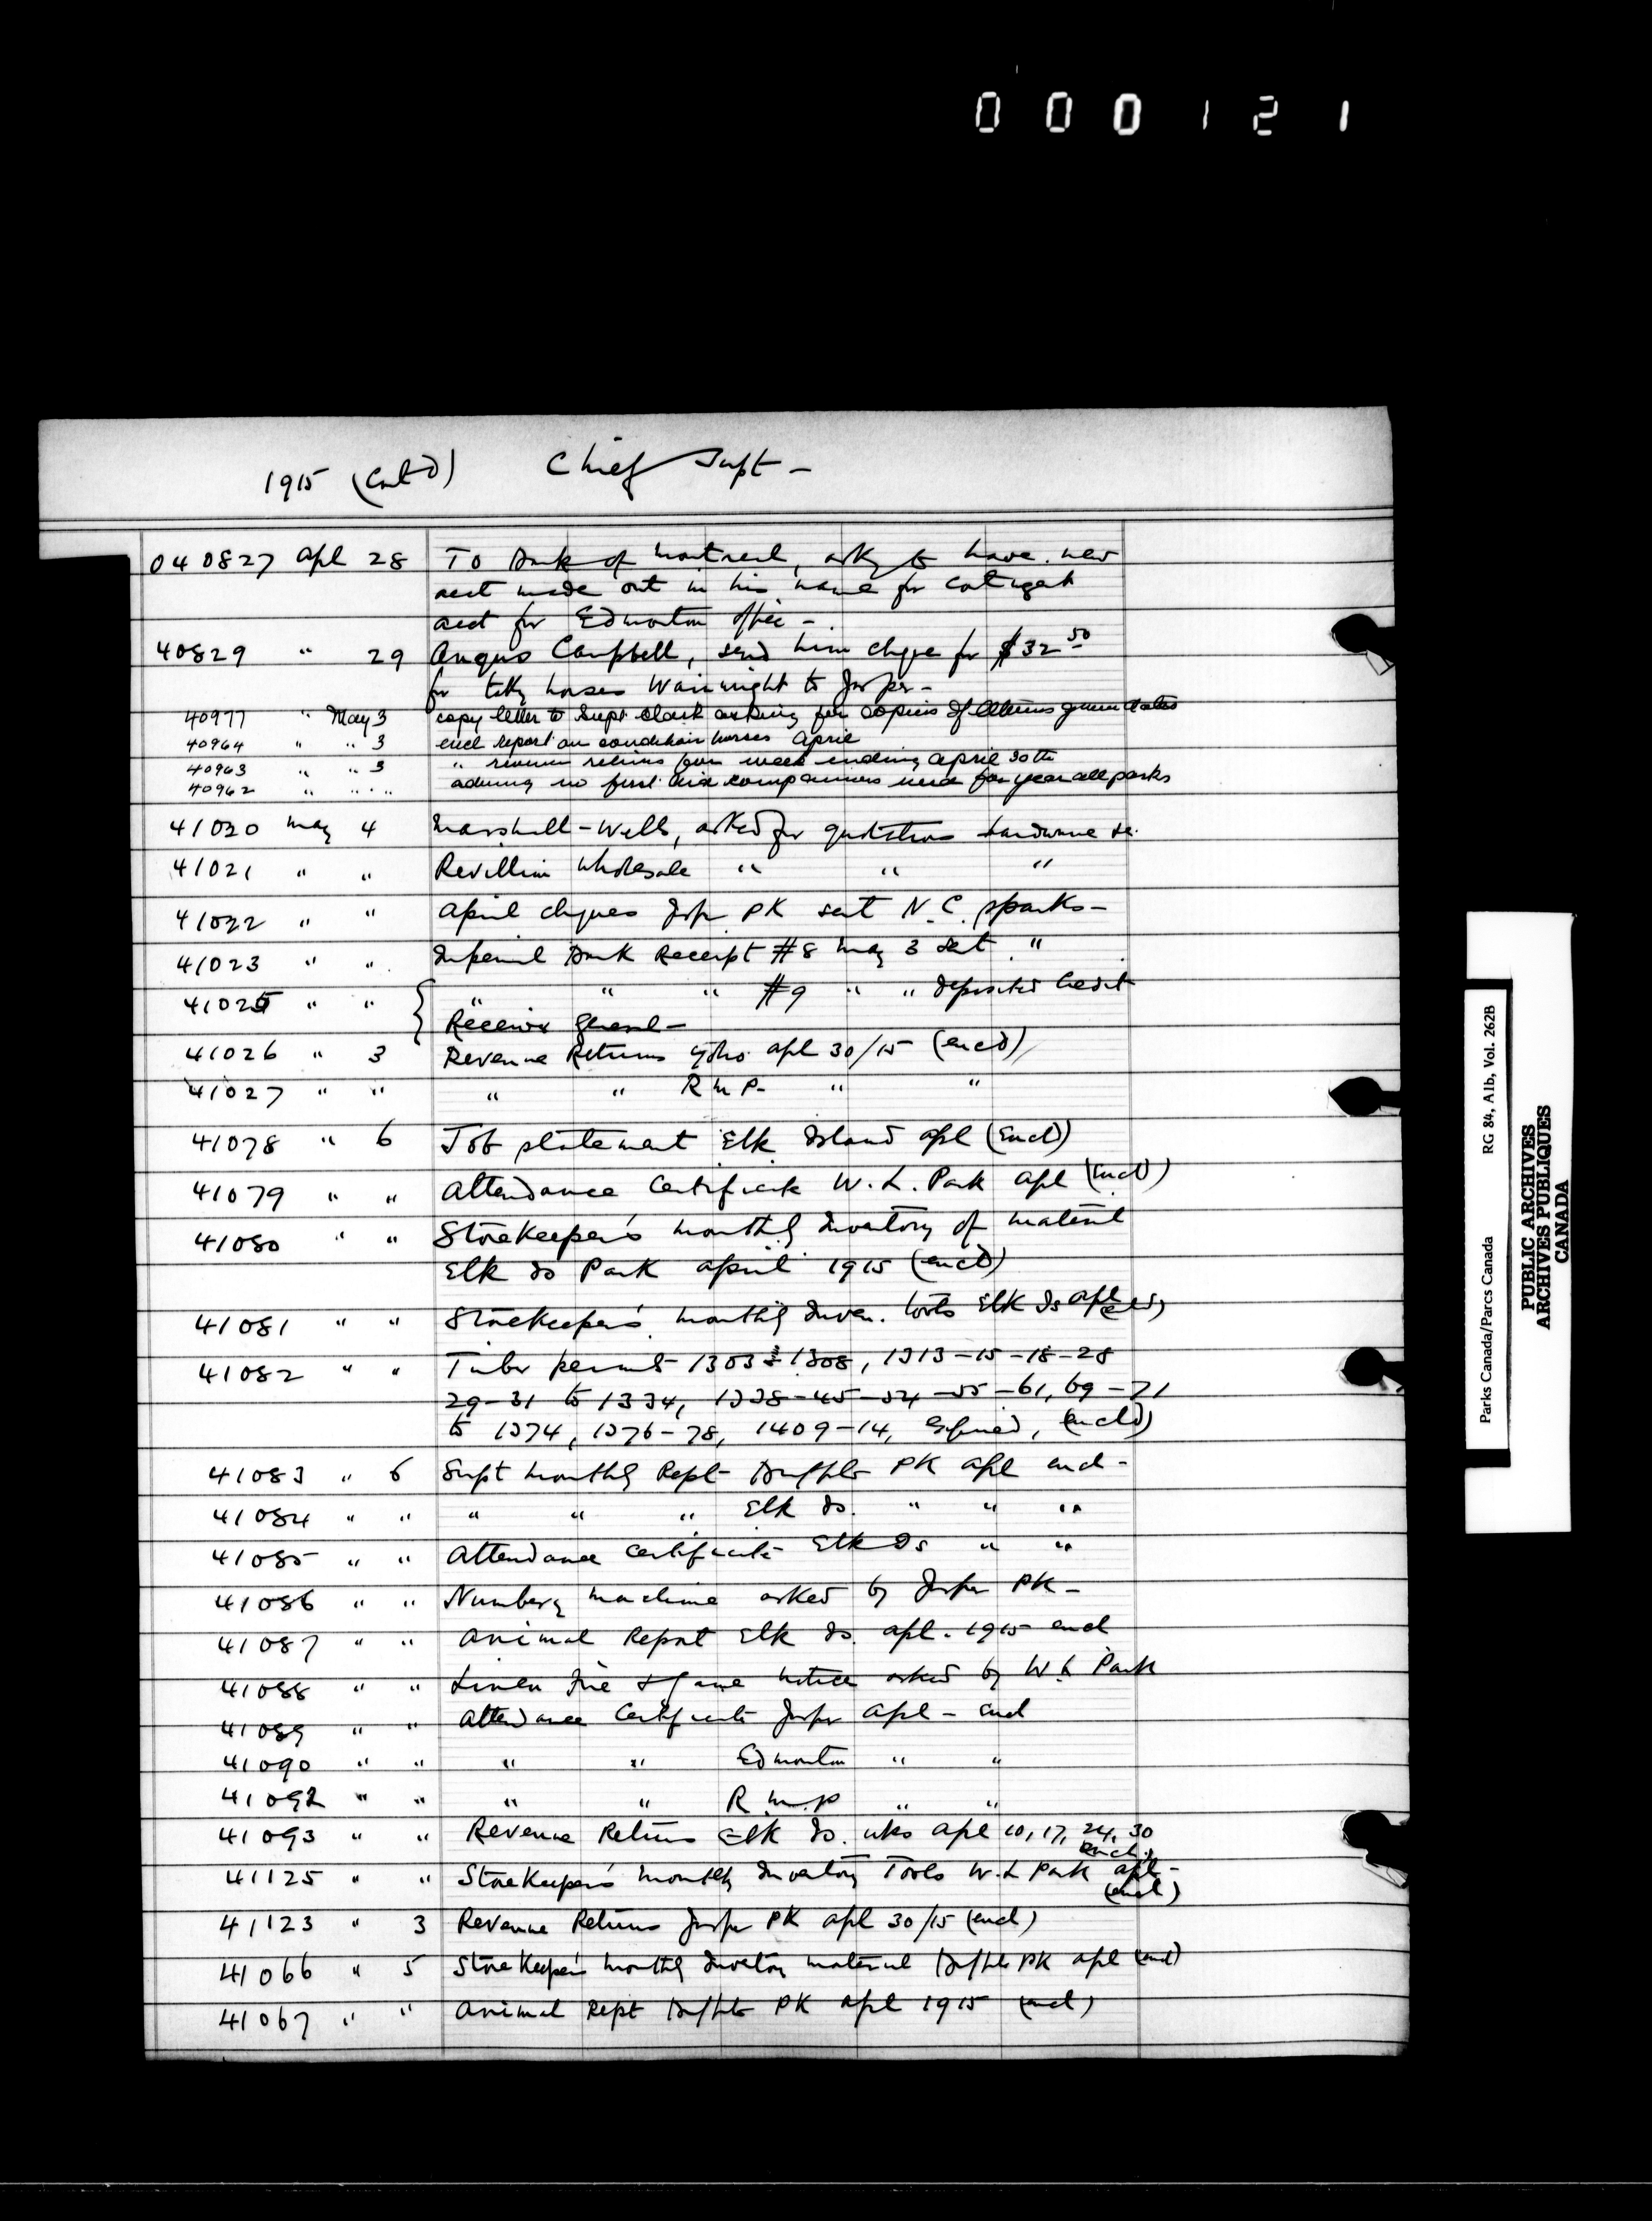 000121
1915 (Cont'd) Chief Supt -
040827 Apl 28 To Bank of Montreal, asky to have new
acct made out in his name for Contingent
acct for Edmonton Office -
40829 " 29 Angus Campbell, send him cheque for $32 50
for takg horses Wainwright to Jasper -
40977 " May 3 copy letter to Supt Clark asking for copies of letters given dates
40964 " " 3 encl report on condition horses April
40963 " " 3 " revenue returns for week ending April 30th
40962 " " " " advising no first aid comp used for year all parks
41020 May 4 Marshall-Wells, asked for quotations hardware &c.
41021 " " Revillon Wholesale " " "
41022 " " April cheques Jasper PK sent N.C. Sparks -
41023 " " Imperial Bank Receipt #8 May 3 sent "
41025 " " " " " #9 " " deposited Credit
Receiver General -
41026 " 3 Revenue Returns apl 30/15 (encd)
41027 " " " " R M P. " "
41078 " 6 Job statement Elk Island apl (encd)
41079 " " Attendance Certificate W. L. Park apl (encd)
41080 " " Storekeeper's monthly Inventory of material
Elk Is Park April 1915 (encd)
41081 " " Storekeeper's monthly Inven. tools Elk Is apl
41082 " " Timber permits 1303 & 1308, 1313-15-18-28
29-31 to 1334, 1338-45-54-55-61, 69-71
to 1374, 1376-78, 1409-14, Expired, (encld)
41083 " 6 Supt monthly Rept Buffalo PK apl encl -
41084 " " " " " Elk Is. " " "
41085 " " Attendance Certificate Elk Is " "
41086 " " Numberg machine asked by Jasper PK -
41087 " " Animal Report Elk Is. apl. 1915 encl
41088 " " Linen Fire & Game notices asked by W L Park
41089 " " Attendance Certificate Jasper Apl - encl
41090 " " " " Edmonton " "
41092 " " " " R.M.P " "
41093 " " Revenue Returns Elk Is. wks Apl 10, 17, 24, 30
encl.
41125 " " Storekeeper's monthly Inventory Tools W.L Park apl -
(encl)
41123 " 3 Revenue Returns Jasper PK apl 30/15 (encl)
41066 " 5 Storekeeper's monthly Inventory material Buffalo PK apl (encl)
41067 " " Animal Rept Buffalo PK apl 1915 (encl)
Parks Canada/Parcs Canada RG 84, A1b, Vol. 262B
PUBLIC ARCHIVES
ARCHIVES PUBLIQUES
CANADA